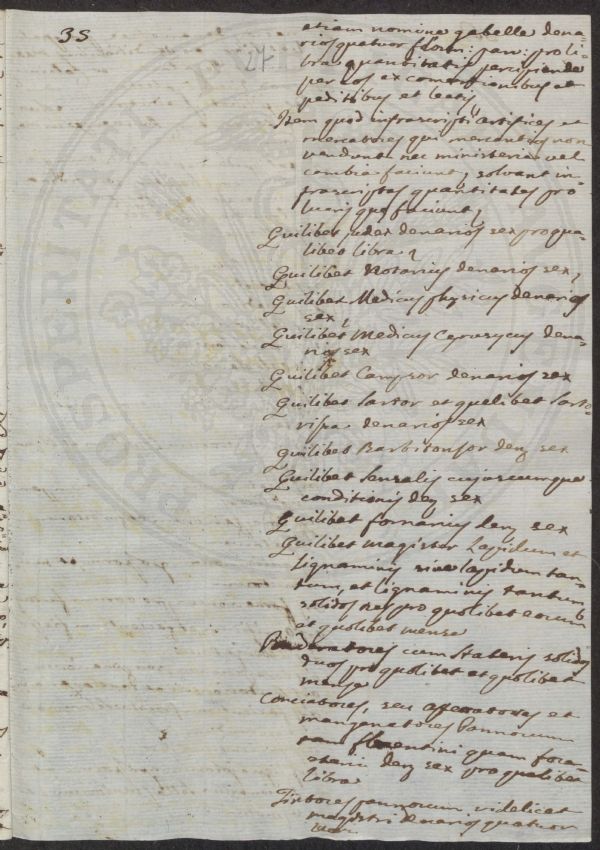 35
27
etiam nomine gabelle dena-
rios quatuor floren: parv: pro li-
bra quantitatis percipiende
per eos ex
peditibus et
Item quod infrascripti artifices et
mercatores qui mercantias non
vendunt nec ministeria vel
cambia faciunt, solvant in-
frascriptas quantitates pro
lucris que faciunt,
Quilibet judex denarios sex pro qua-
libeo libra,
Quilibet Notarius denarios sex,
Quilibet Medicus physicus denarios
sex,
Quilibet Medicus Cerusycus dena-
rios sex
Quilibet Campsor denarios sex
Quilibet Sartor et quelibet Sarto-
rissa denarios sex
Quilibeo Barbitonsor den sex
Quilibet Sensalis cujuscumque
conditionis den sex
Quilibet fornarius den sex
Quilibet magister Lapidum et
Lignaminis sive lapidum tan-
tum, et lignaminis tantum
solidos sex pro quolibet eorum
et quolibet mense
Ponderatores cum Stateris solidos
duos pro quolibet et quolibet
mense
Conciatores, seu et
manganatores Pannorum
tam florentini quam fora-
den sex pro qualibet
libra
Tintores pannorum videlicet
magistri denarios quatuor